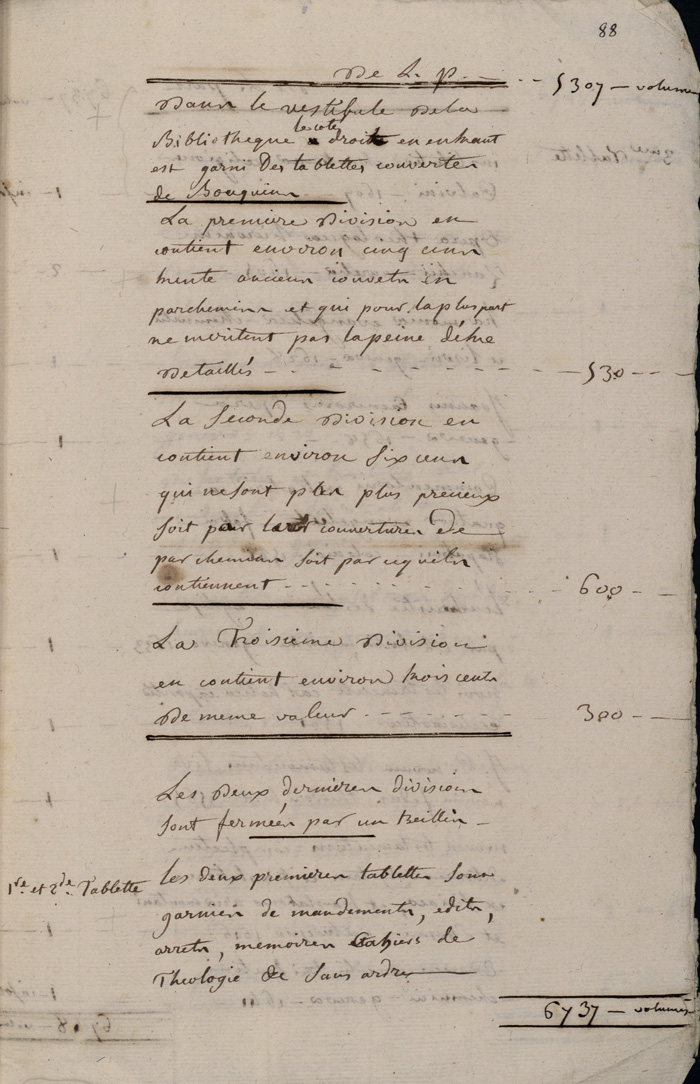 88
De L. p. - - - 5307 - volumes
Dans le vestibule de la
Bibliotheque le coté droite en entrant
est garni Des tablettes couvertes
de Bouquins
La premiere Division en
contient environ cinq cens
trente anciens couverts en
parchemins et qui pour la plus part
ne meritent pas la peine d'être
Detaillés - - - - - 530 - -
La Seconde Division en
contient environ six cens
qui ne sont plus precieux
soit par couvertures de
parchemins soit par ce qu'ils
contiennent - - - - - 600 -
La Troisieme Division
en contient environ trois cents
De meme valeur - - - - 300 - -
Les Deux dernieres divisions
sont fermées par un treillis -
1re et 2de Tablette
les deux premieres tablettes sont
garnies de mandements, edits,
arrets, memoires Cahiers de
Theologie &c sans ordre
6737 - volumes